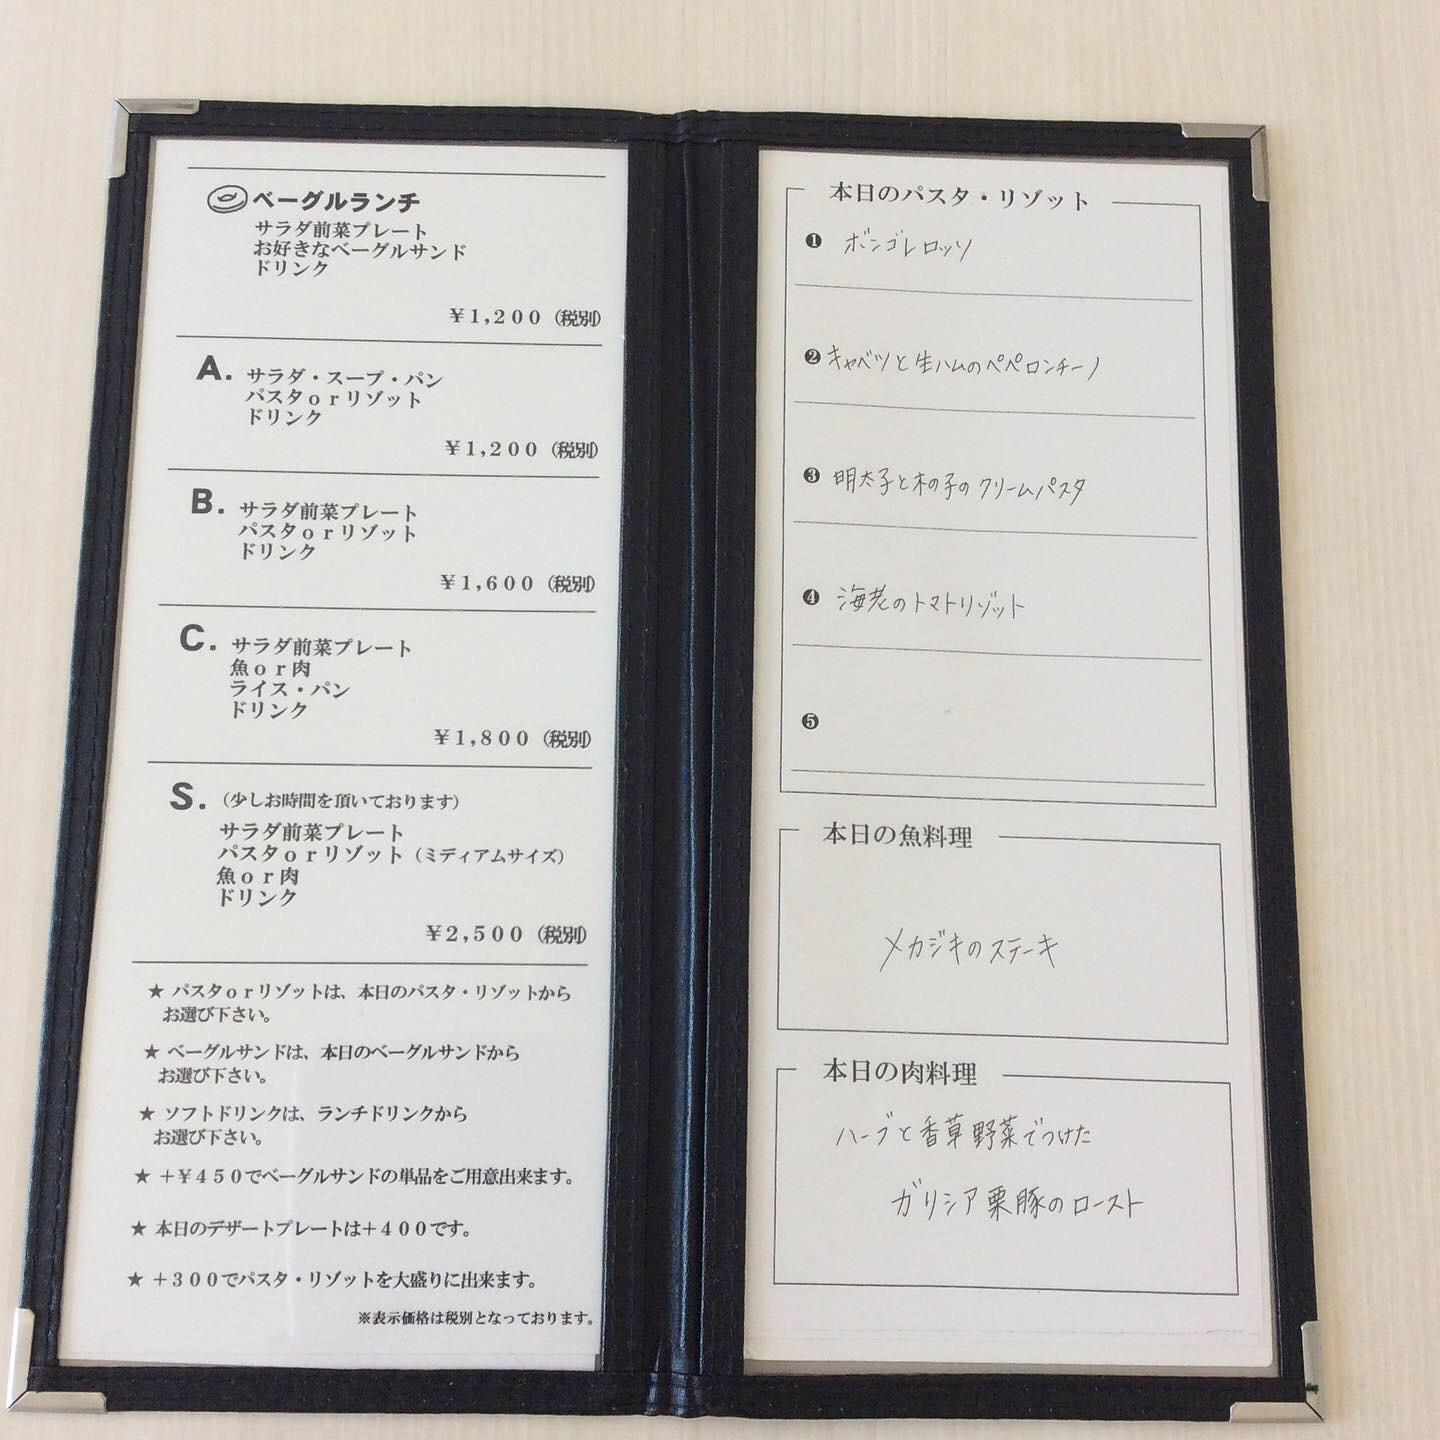 ベーグルランチ
サラダ前菜プレート
お好きなベーグルサンド
ドリンク
¥1,200(税別)
A. サラダ・スープ・パン
パスタorリゾット
ドリンク
¥1,200(税別)
B. サラダ前菜プレート
パスタorリゾット
ドリンク
¥1,600(税別)
C. サラダ前菜プレート
魚or肉
ライス・パン
ドリンク
¥1,800(税別)
S. (少しお時間を頂いております)
サラダ前菜プレート
パスタorリゾット(ミディアムサイズ)
魚or肉
ドリンク
¥2,500(税別)
★ パスタorリゾットは、本日のパスタ・リゾットから
お選び下さい。
★ ベーグルサンドは、本日のベーグルサンドから
お選び下さい。
★ ソフトドリンクは、ランチドリンクから
お選び下さい。
★ +¥450でベーグルサンドの単品をご用意出来ます。
★ 本日のデザートプレートは+400です。
★ +300でパスタ・リゾットを大盛りに出来ます。
※表示価格は税別となっております。
本日のパスタ・リゾット
❶ ボンゴレロッソ
❷ キャベツと生ハムのペペロンチーノ
❸ 明太子と木の子のクリームパスタ
❹ 海老のトマトリゾット
❺
本日の魚料理
メカジキのステーキ
本日の肉料理
ハーブと香草野菜でつけた
ガリシア栗豚のロースト